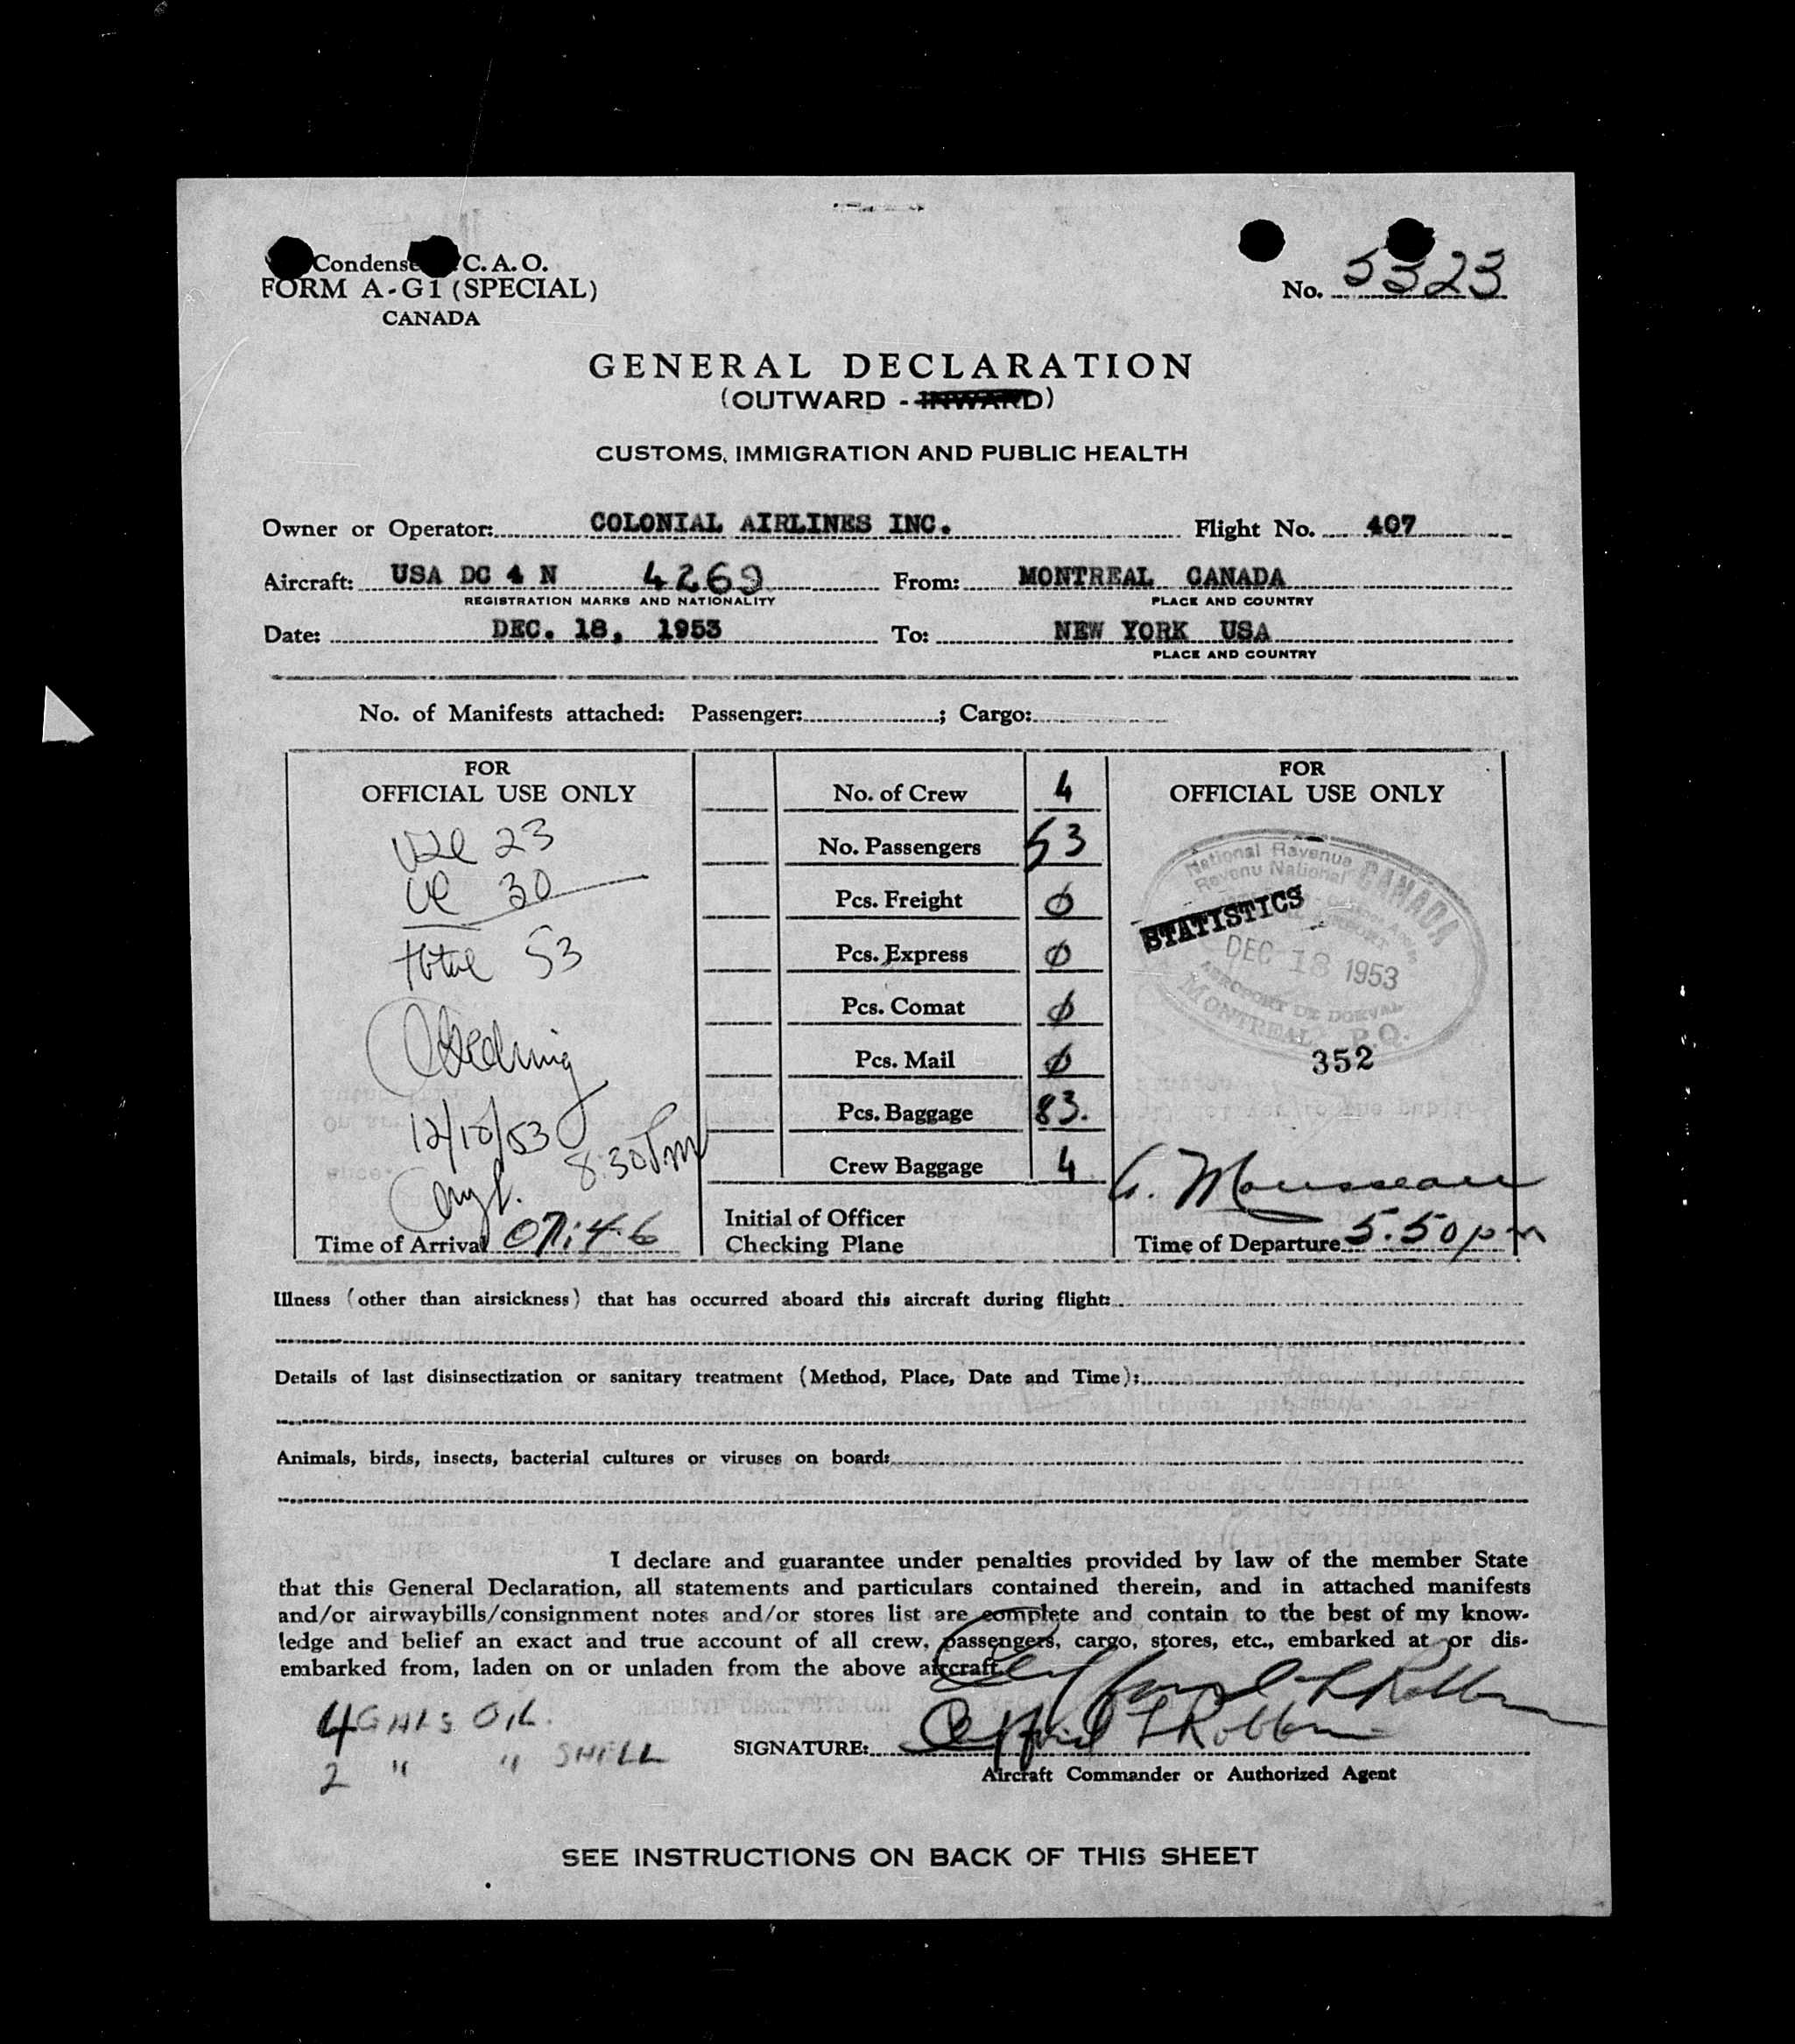 Condense C.A.O.
FORM A-G1 (SPECIAL)
CANADA
No. 5323
GENERAL DECLARATION
(OUTWARD - INWARD)
CUSTOMS, IMMIGRATION AND PUBLIC HEALTH
Owner or Operator: COLONIAL AIRLINES INC. Flight No. 407
Aircraft: USA DC 4 N 4269 From: MONTREAL CANADA
REGISTRATION MARKS AND NATIONALITY PLACE AND COUNTRY
Date: DEC. 18, 1953 To: NEW YORK USA
PLACE AND COUNTRY
No. of Manifests attached: Passenger: ; Cargo:
FOR
OFFICIAL USE ONLY
23
30
total 53
12/18/53
8:30 Pm
Time of Arrival 07:46
No. of Crew 4
No. Passengers 53
Pcs. Freight 0
Pcs. Express 0
Pcs. Comat 0
Pcs. Mail 0
Pcs. Baggage 83.
Crew Baggage 4
Initial of Officer
Checking Plane
FOR
OFFICIAL USE ONLY
National Revenue CANADA
Revenu National
STATISTICS
DEC 18 1953
AEROPORT DE DORVAL
MONTREAL, P.Q.
352
G. Mousseau
Time of Departure 5.50 pm
Illness (other than airsickness) that has occurred aboard this aircraft during flight:
Details of last disinsectization or sanitary treatment (Method, Place, Date and Time):
Animals, birds, insects, bacterial cultures or viruses on board:
I declare and guarantee under penalties provided by law of the member State
that this General Declaration, all statements and particulars contained therein, and in attached manifests
and/or airwaybills/consignment notes and/or stores list are complete and contain to the best of my know-
ledge and belief an exact and true account of all crew, passengers, cargo, stores, etc., embarked at or dis-
embarked from, laden on or unladen from the above aircraft.
4 GALS OIL.
2 " " SHELL
SIGNATURE:
Aircraft Commander or Authorized Agent
SEE INSTRUCTIONS ON BACK OF THIS SHEET